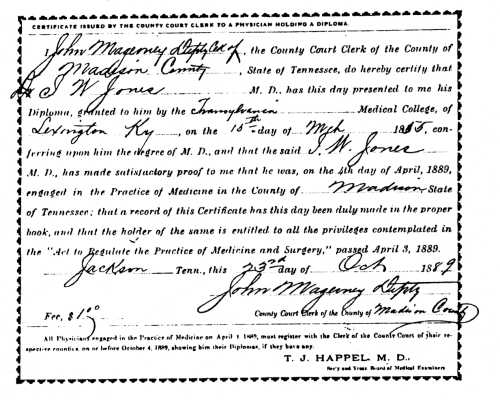 CERTIFICATE ISSUED BY THE COUNTY COURT CLERK TO A PHYSICIAN HOLDING A DIPLOMA
I, John Mageney Deputy Clk of, the County Court Clerk of the County of
Madison County, State of Tennessee, do hereby certify that
Dr J W Jones M. D., has this day presented to me his
Diploma, granted to him by the Transylvania Medical College, of
Lexington Ky, on the 15th day of Mch 1855, con-
ferring upon him the degree of M. D., and that the said J. W. Jones
M. D., has made satisfactory proof to me that he was, on the 4th day of April, 1889,
engaged in the Practice of Medicine in the County of Madison State
of Tennessee; that a record of this Certificate has this day been duly made in the proper
book, and that the holder of the same is entitled to all the privileges contemplated in
the "Act to Regulate the Practice of Medicine and Surgery," passed April 3, 1889.
Jackson Tenn., this 23rd day of Oct 1889
John Mageney Deputy
Fee, $1.00 County Court Clerk of the County of Madison County
All Physicians engaged in the Practice of Medicine on April 4, 1889, must register with the Clerk of the County Court of their re-
spective counties, on or before October 4, 1889, showing him their Diplomas, if they have any.
T. J. HAPPEL, M. D.,
Sec'y and Treas. Board of Medical Examiners